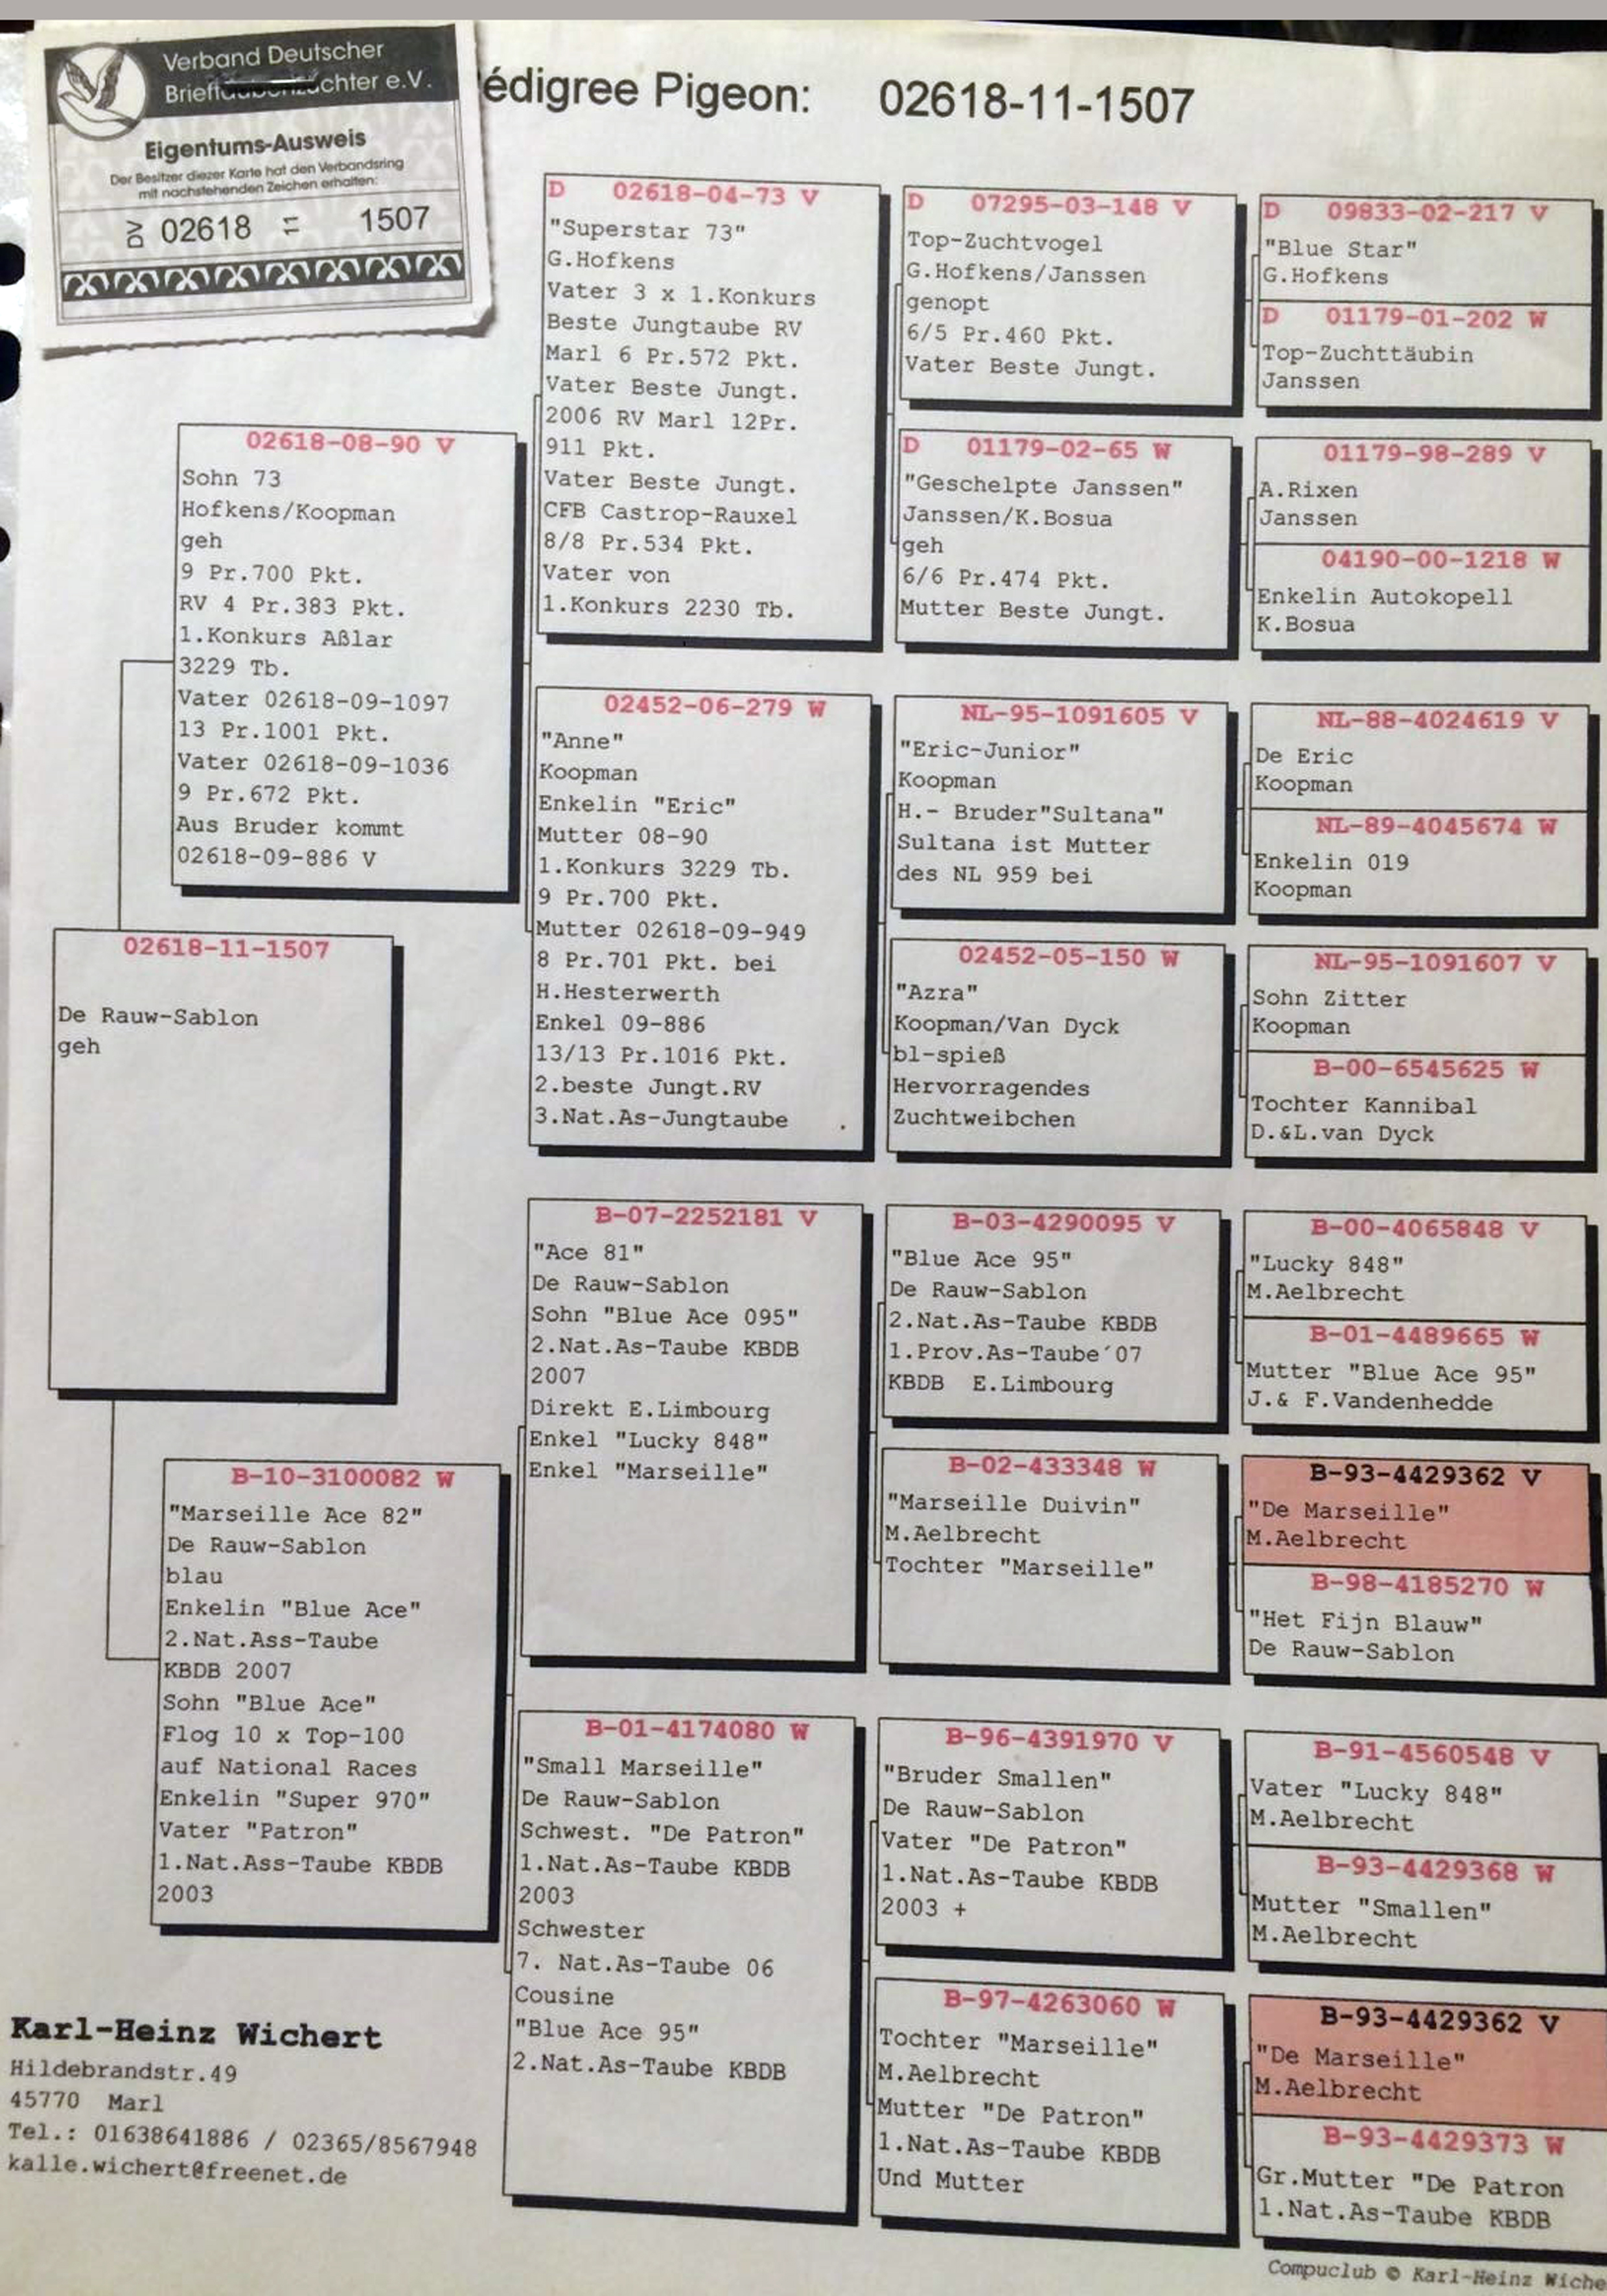 Verband Deutscher
e.V.
Eigentums-Ausweis
Der Besitzer dieser Karte hat den Verbandsring
mit nachstehenden Zeichen erhalten:
DV 02618 11 1507
édigree Pigeon: 02618-11-1507
02618-11-1507
De Rauw-Sablon
geh
02618-08-90 V
Sohn 73
Hofkens/Koopman
geh
9 Pr.700 Pkt.
RV 4 Pr.383 Pkt.
1.Konkurs Aßlar
3229 Tb.
Vater 02618-09-1097
13 Pr.1001 Pkt.
Vater 02618-09-1036
9 Pr.672 Pkt.
Aus Bruder kommt
02618-09-886 V
B-10-3100082 W
"Marseille Ace 82"
De Rauw-Sablon
blau
Enkelin "Blue Ace"
2.Nat.Ass-Taube
KBDB 2007
Sohn "Blue Ace"
Flog 10 x Top-100
auf National Races
Enkelin "Super 970"
Vater "Patron"
1.Nat.Ass-Taube KBDB
2003
D 02618-04-73 V
"Superstar 73"
G.Hofkens
Vater 3 x 1.Konkurs
Beste Jungtaube RV
Marl 6 Pr.572 Pkt.
Vater Beste Jungt.
2006 RV Marl 12Pr.
911 Pkt.
Vater Beste Jungt.
CFB Castrop-Rauxel
8/8 Pr.534 Pkt.
Vater von
1.Konkurs 2230 Tb.
02452-06-279 W
"Anne"
Koopman
Enkelin "Eric"
Mutter 08-90
1.Konkurs 3229 Tb.
9 Pr.700 Pkt.
Mutter 02618-09-949
8 Pr.701 Pkt. bei
H.Hesterwerth
Enkel 09-886
13/13 Pr.1016 Pkt.
2.beste Jungt.RV
3.Nat.As-Jungtaube
B-07-2252181 V
"Ace 81"
De Rauw-Sablon
Sohn "Blue Ace 095"
2.Nat.As-Taube KBDB
2007
Direkt E.Limbourg
Enkel "Lucky 848"
Enkel "Marseille"
B-01-4174080 W
"Small Marseille"
De Rauw-Sablon
Schwest. "De Patron"
1.Nat.As-Taube KBDB
2003
Schwester
7. Nat.As-Taube 06
Cousine
"Blue Ace 95"
2.Nat.As-Taube KBDB
D 07295-03-148 V
Top-Zuchtvogel
G.Hofkens/Janssen
genopt
6/5 Pr.460 Pkt.
Vater Beste Jungt.
D 01179-02-65 W
"Geschelpte Janssen"
Janssen/K.Bosua
geh
6/6 Pr.474 Pkt.
Mutter Beste Jungt.
NL-95-1091605 V
"Eric-Junior"
Koopman
H.- Bruder"Sultana"
Sultana ist Mutter
des NL 959 bei
02452-05-150 W
"Azra"
Koopman/Van Dyck
bl-spieß
Hervorragendes
Zuchtweibchen
B-03-4290095 V
"Blue Ace 95"
De Rauw-Sablon
2.Nat.As-Taube KBDB
1.Prov.As-Taube´07
KBDB E.Limbourg
B-02-433348 W
"Marseille Duivin"
M.Aelbrecht
Tochter "Marseille"
B-96-4391970 V
"Bruder Smallen"
De Rauw-Sablon
Vater "De Patron"
1.Nat.As-Taube KBDB
2003 +
B-97-4263060 W
Tochter "Marseille"
M.Aelbrecht
Mutter "De Patron"
1.Nat.As-Taube KBDB
Und Mutter
D 09833-02-217 V
"Blue Star"
G.Hofkens
D 01179-01-202 W
Top-Zuchttäubin
Janssen
01179-98-289 V
A.Rixen
Janssen
04190-00-1218 W
Enkelin Autokopell
K.Bosua
NL-88-4024619 V
De Eric
Koopman
NL-89-4045674 W
Enkelin 019
Koopman
NL-95-1091607 V
Sohn Zitter
Koopman
B-00-6545625 W
Tochter Kannibal
D.&L.van Dyck
B-00-4065848 V
"Lucky 848"
M.Aelbrecht
B-01-4489665 W
Mutter "Blue Ace 95"
J.& F.Vandenhedde
B-93-4429362 V
"De Marseille"
M.Aelbrecht
B-98-4185270 W
"Het Fijn Blauw"
De Rauw-Sablon
B-91-4560548 V
Vater "Lucky 848"
M.Aelbrecht
B-93-4429368 W
Mutter "Smallen"
M.Aelbrecht
B-93-4429362 V
"De Marseille"
M.Aelbrecht
B-93-4429373 W
Gr.Mutter "De Patron
1.Nat.As-Taube KBDB
Karl-Heinz Wichert
Hildebrandstr.49
45770 Marl
Tel.: 01638641886 / 02365/8567948
kalle.wichert@freenet.de
Compuclub © Karl-Heinz Wiche